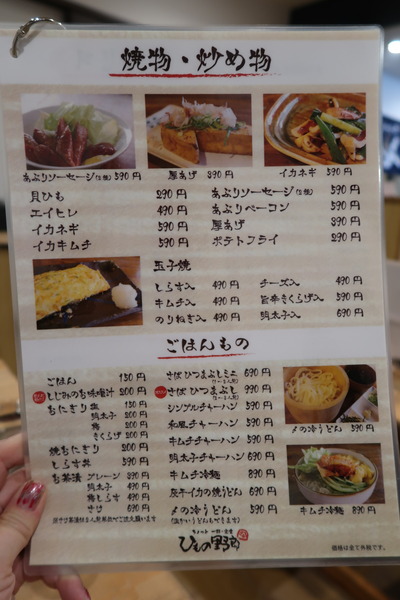 焼物・炒め物
あぶりソーセージ(5種) 590円
厚あげ 390円
イカネギ 590円
貝ひも 290円
エイヒレ 490円
イカネギ 590円
イカキムチ 590円
あぶりソーセージ(5種) 590円
あぶりベーコン 590円
厚あげ 390円
ポテトフライ 290円
玉子焼
しらす入 490円
キムチ入 490円
のりねぎ入 490円
チーズ入 490円
旨辛きくらげ入 590円
明太子入 690円
ごはんもの
ごはん 150円
しじみのお味噌汁 200円
おにぎり 塩 150円
明太子 200円
梅 200円
きくらげ 200円
焼おにぎり 200円
しらす丼 590円
お茶漬 プレーン 390円
明太子 490円
梅しらす 490円
さけ 690円
さば ひつまぶしミニ 690円
さば ひつまぶし 990円
シンプルチャーハン 590円
和風チャーハン 590円
キムチチャーハン 590円
明太子チャーハン 690円
キムチ冷麺 890円
灰干イカの焼うどん 690円
〆の冷うどん 590円
(温かいうどんもできます)
〆の冷うどん 590円
キムチ冷麺 890円
ひもの野郎
価格は全て外税です。